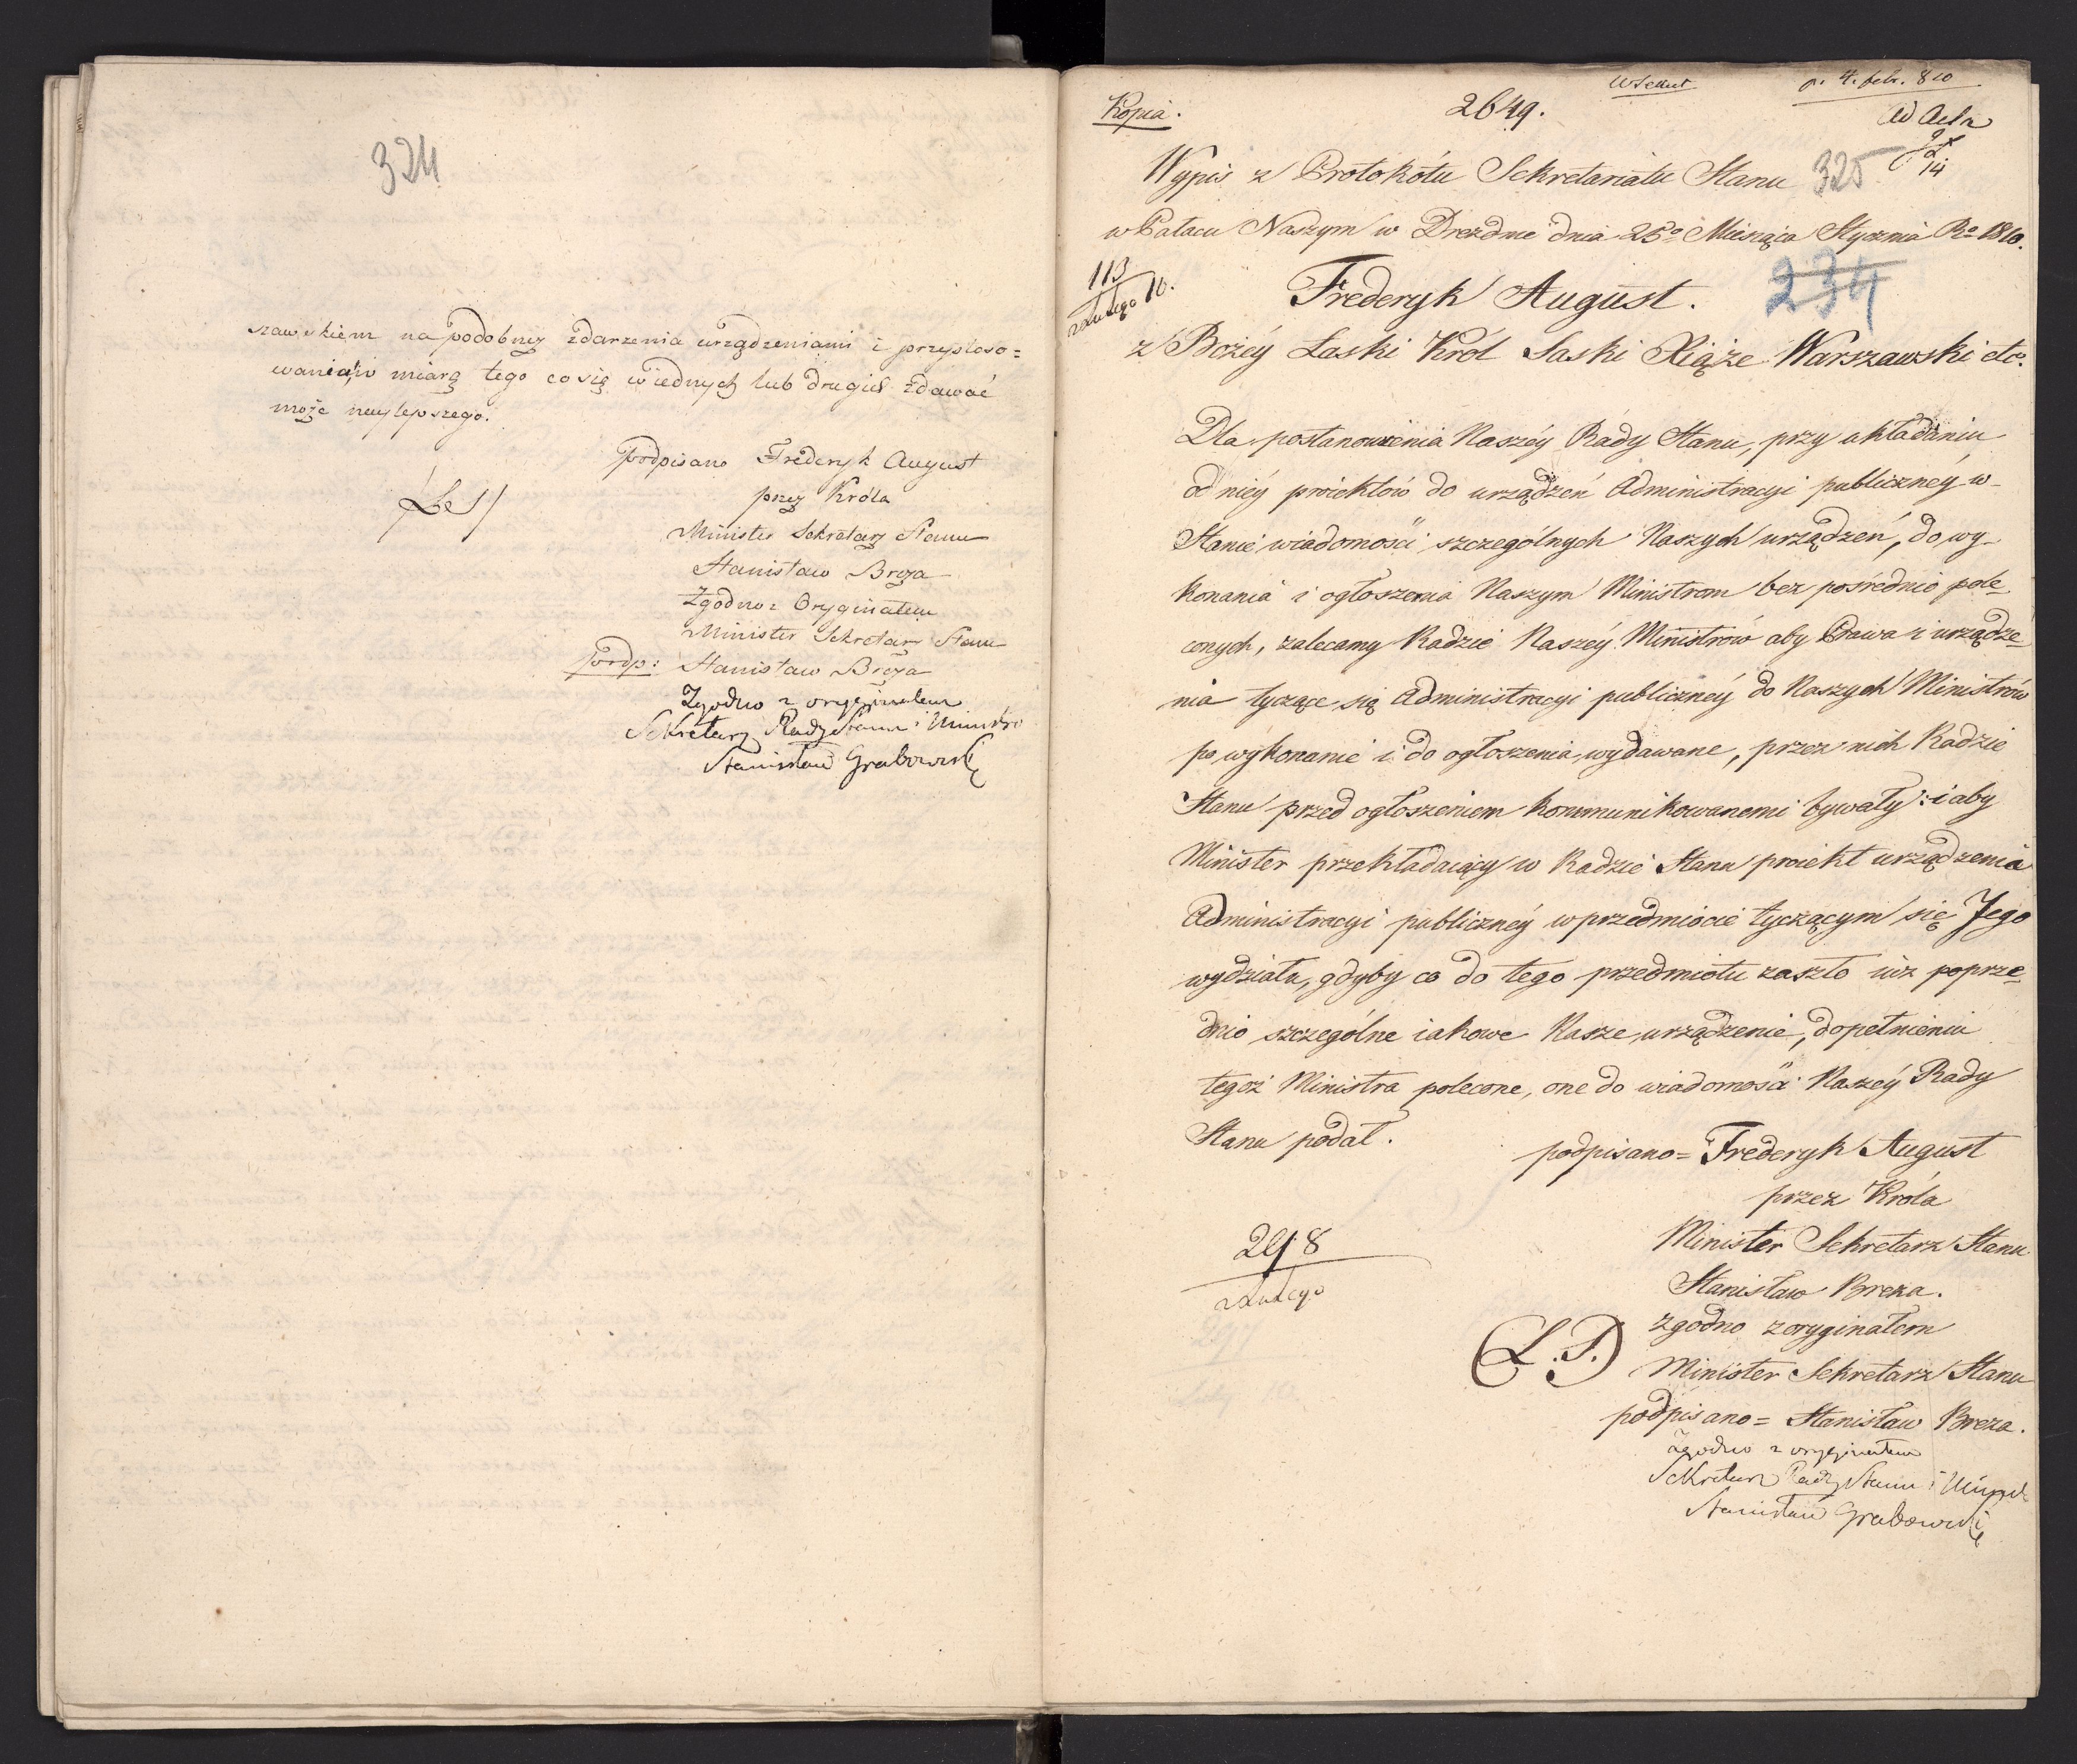 324
szawskiem na podobney zdarzenia urządzeniami i przystoso=
waniaśw miarę tego co się w iednych lub drugich zdawać
może naylepszego.
podpisano Frederyk August
przez Króla
Minister Sekretarz Stanu
Stanisław Breza
(L S)
Zgodno z Oryginałem
Minister Sekretarz Stanu
podp: Stanisław Breza
Zgodno z oryginałem
Sekretarz Rady Stanu i Ministrów
Stanisław Grabowski
Kopia.
2649.
4. febr. 810
Ad Acta
14
Wypis z Protokółu Sekretariatu Stanu
325
w Pałacu Naszym w Dreźdnie dnia 25o Miesiąca Stycznia Ro 1810.
113
Lutego 10.
Frederyk August.
234
z Bożéy Łaski Król Saski Xiąże Warszawski etc.
Dla postanowienia Naszéy Rady Stanu, przy układaniu
od niéy proiektów do urządzeń Administracyi publicznéy w
Stanie wiadomości szczególnych Naszych urządzeń, do wy-
konania i ogłoszenia Naszym Ministrom bez pośrednio pole=
conych, zalecamy Radzie Naszéy Ministrów aby Prawa i urządze=
nia tyczące się Administracyi publicznéy do Naszych Ministrów
po wykonanie i do ogłoszenia wydawane, przez nich Radzie
Stanu przed ogłoszeniem kommunikowanemi bywały: i aby
Minister przekładaiący w Radzie Stanu proiekt urządzenia
Administracyi publicznéy w przedmiocie tyczącym się Jego
wydziału, gdyby co do tego przedmiotu zaszło iuż poprze=
dnio szczególne iakowe Nasze urządzenie, dopełnieniu
tegoż Ministra polecone, one do wiadomości Naszéy Rady
Stanu podał.
podpisano= Frederyk August
przez Króla
Minister Sekretarz Stanu
Stanisław Breza.
298
Lutego
zgodno z oryginałem
(L.S.)
Minister Sekretarz Stanu
podpisano= Stanisław Breza.
Zgodno z oryginałem
Sekretarz Rady Stanu i Ministr
Stanisław Grabowski